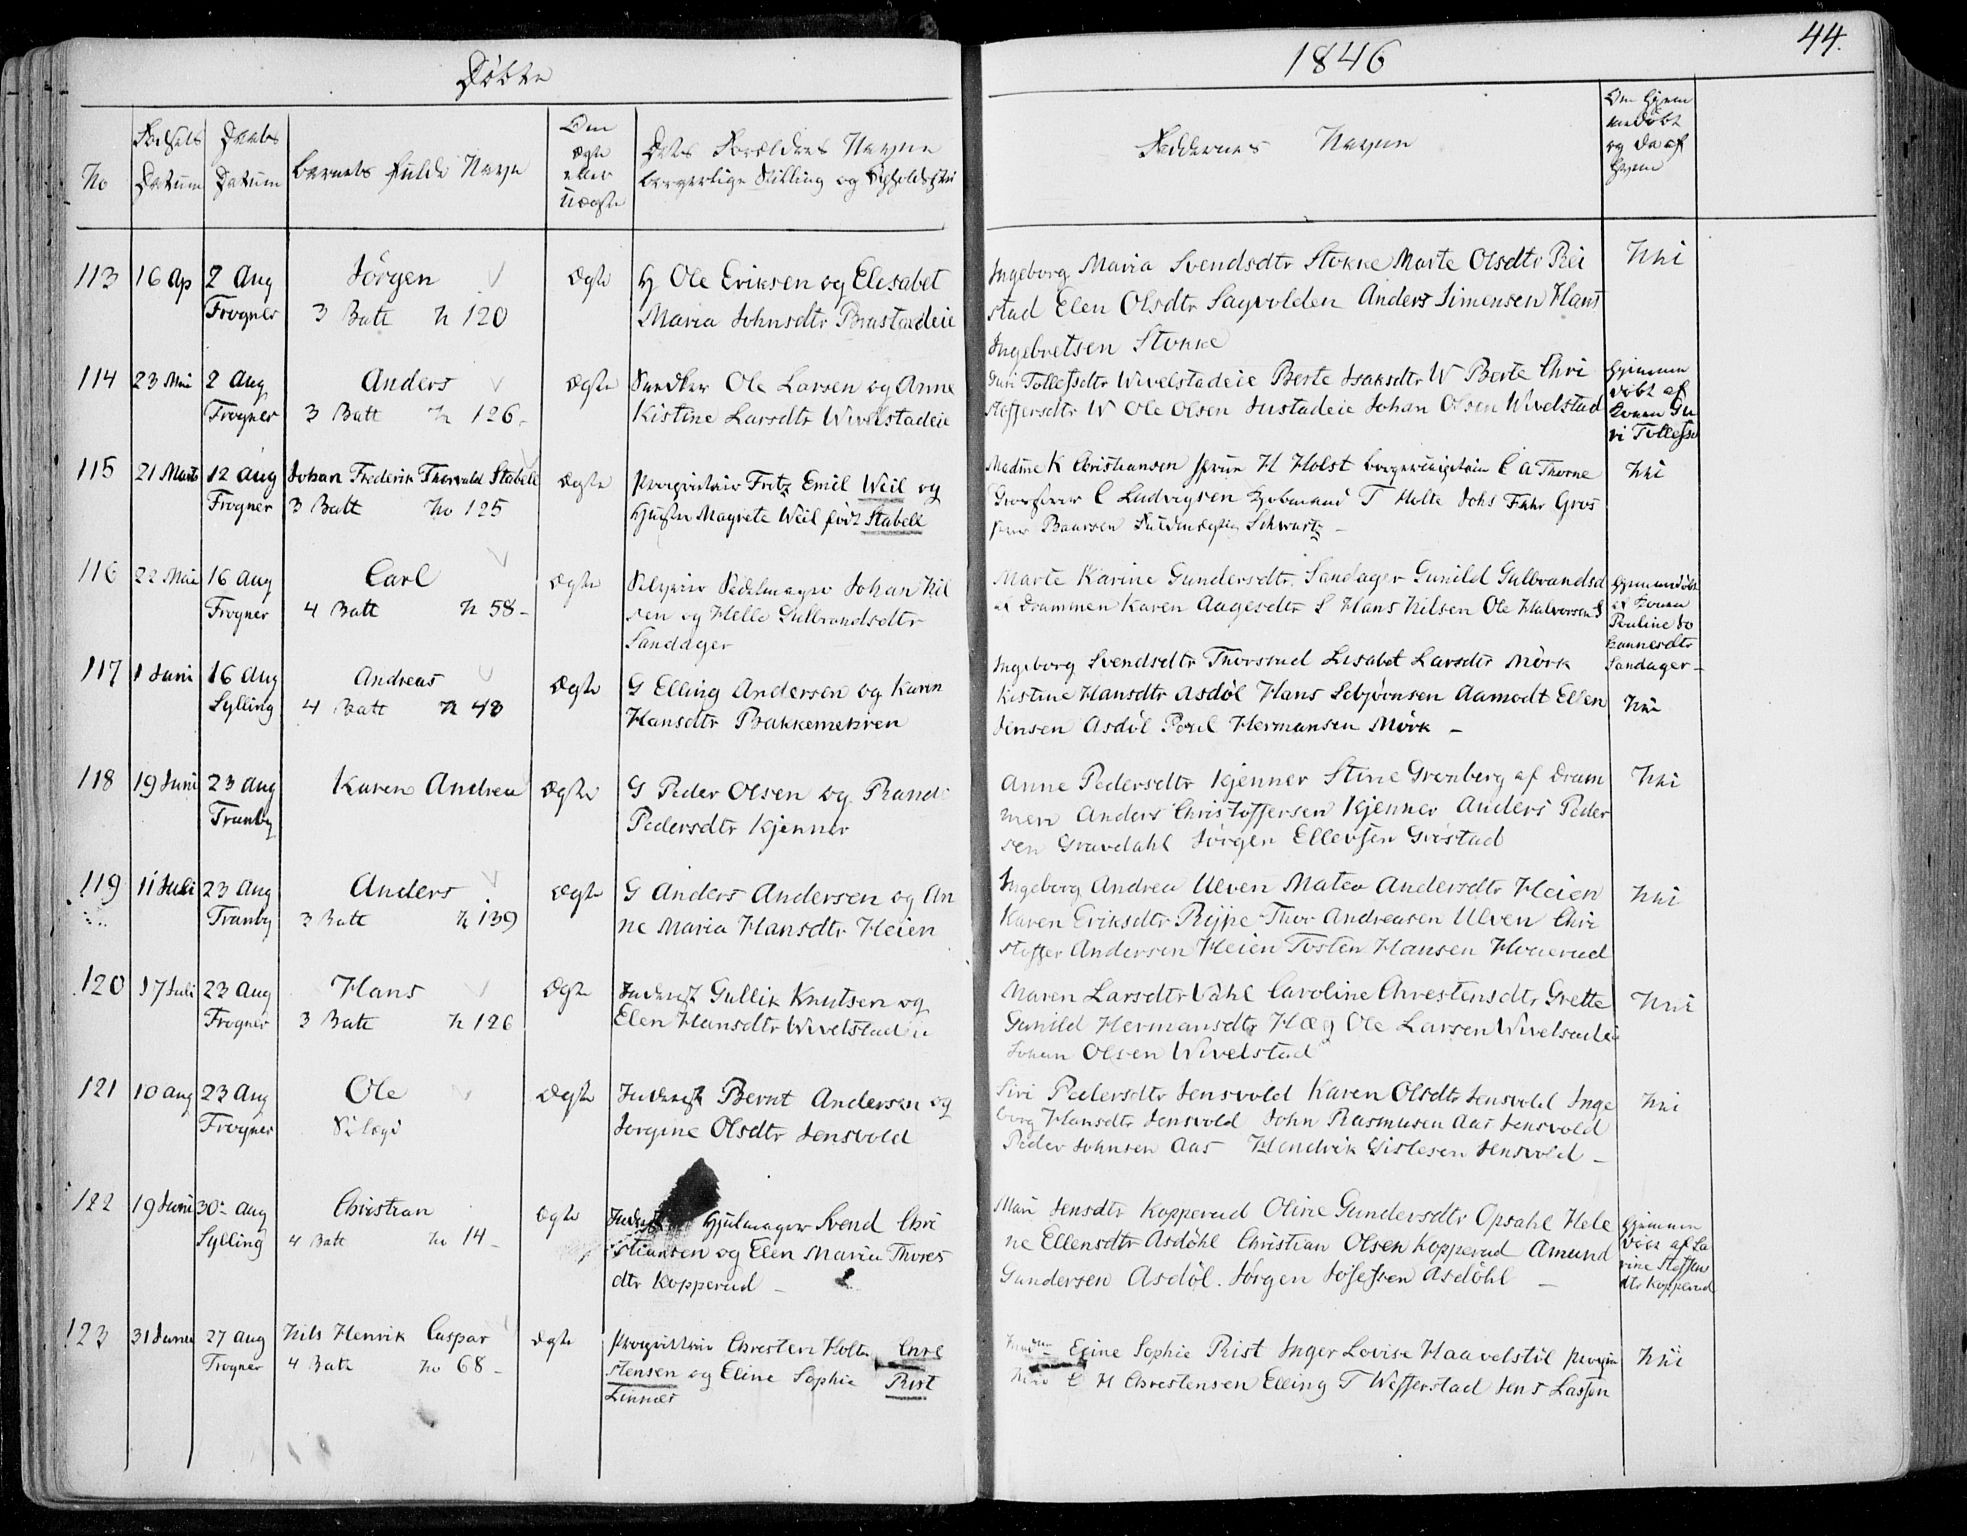 Döbte
1846
44.
No
Fødsels
Datum
Daabs
Datum
Barnets fulde Navn
Om
Ægte
eller
Uægte
Dets Forældres Navne
borgerlige Stilling og Opholdsted
Faddernes Navne
Om Hjem
medøbt
og da af
hvem
113 16 Ap 2 Aug Jörgen Ægte H Ole Eriksen og Elisabet
Frogner 3 Batt N 120 Maria Johnsdtr Brastadeie
Ingeborg Maria Svendsdtr Stokke Marte Olsdtr Rei
stad Elen Olsdtr Sagvolden Anders Simensen Hans
Ingebretsen Stokke
Nei
114 23 Mai 2 Aug Anders Ægte Ole Larsen og Anne
Frogner 3 Batt N 126 Kistine Larsdtr Wivelstadeie
Guri Tollefsdtr Wivelstadeie Berte Isaksdtr W Berte Chri
stoffersdtr W Ole Olsen Justadeie Johan Olsen Wivelstad
Hjemme
döbt af
Konen Gu
ri Tollefsd
115 21 Marts 12 Aug Johan Frederik Thorvald Stabell Ægte Proprietair Fritz Emil Weil og
Frogner 3 Batt No 125 Hustru Magrete Weil født Stabell
Madme K Christiansen Frue H Holst C A Thorne
Grosserer C Ludvigsen Kjøbmand T Holte Johs Fahr Gros
serer Baarsen Fuldmægtig Schwartz
Nei
116 22 Mai 16 Aug Carl Ægte Selveier Sadelmager Johan Nil
Frogner 4 Batt N 58 sen og Helle Gulbrandsdtr
Sandager
Marte Karine Gundersdtr Sandager Gunild Gulbrandsd
af Drammen Karen Aagesdtr S Hans Nilsen Ole Halvorsen S
Hjemmedöbt
af Konen
Pauline Jo
hannesdtr
Sandager
117 1 Juni 16 Aug Andreas Ægte G Elling Andersen og Karen
Sylling 4 Batt N 48 Hansdtr Bakkemehren
Ingeborg Svendsdtr Thorsrud Lisabet Larsdtr Mörk
Kistine Hansdtr Asdöl Hans Sebjörnsen Aamodt Ellen
Jensen Asdöl Poul Hermansen Mörk
Nei
118 19 Juni 23 Aug Karen Andrea Ægte G Peder Olsen og Randi
Tranby Pedersdtr Kjenner
Anne Pedersdtr Kjenner Stine Gronberg af Dram
men Anders Christoffersen Kjenner Anders Peder
sen Gravdahl Jörgen Ellevsen Gristad
Nei
119 11 Juli 23 Aug Anders Ægte G Anders Andersen og An
Tranby 3 Batt N 139 ne Maria Hansdtr Heien
Ingeborg Andrea Ulven Matea Andersdtr Heien
Karen Eriksdtr Rype Thor Andreasen Ulven Chri
stoffer Andersen Heien Tosten Hansen Houerud
Nei
120 17 Juli 23 Aug Hans Ægte Inderst Gullik Knutsen og
Frogner 3 Batt N 126 Elen Hansdtr Wivelstad
Maren Larsdtr Dahl Caroline Chrestensdtr Grette
Gunild Hermansdtr Hæg Ole Larsen Wivelstadei
Johan Olsen Wivelstad
Nei
121 10 Aug 23 Aug Ole Ægte Inderst Bernt Andersen og
Frogner Jorgine Olsdtr Jensvold
Siri Pedersdtr Jensvold Karen Olsdtr Jensvold Inge
borg Hansdtr Jensvold John Rasmusen Aas Jensvold
Peder Johnsen Aas Hendrik Gislesen Jensvold
Nei
122 19 Juni 30 Aug Christian Ægte Inderst Hjulmager Svend Chri
Sylling 4 Batt No 14 stiansen og Elen Maria Thores
dtr Kopperud
Mari Jensdtr Kopperud Oline Gundersdtr Opsahl Hele
ne Ellensdtr Asdöhl Christian Olsen Kopperud Amund
Gundersen Asdöl Jörgen Josefsen Asdöhl
Hjemme
döbt af La
rine Steffens
dtr Kopperud
123 31 Juni 27 Aug Nils Henrik Caspar Ægte Proprietair Chresten Holte Chre
Frogner 4 Batt No 68 stensen og Eline Sophie Rist
Linnes
Eline Sophie Rist Inger Lovise Haavelstöl Proprie
C H Chrestensen Elling T Wefferstad Jens Lassen
Nei